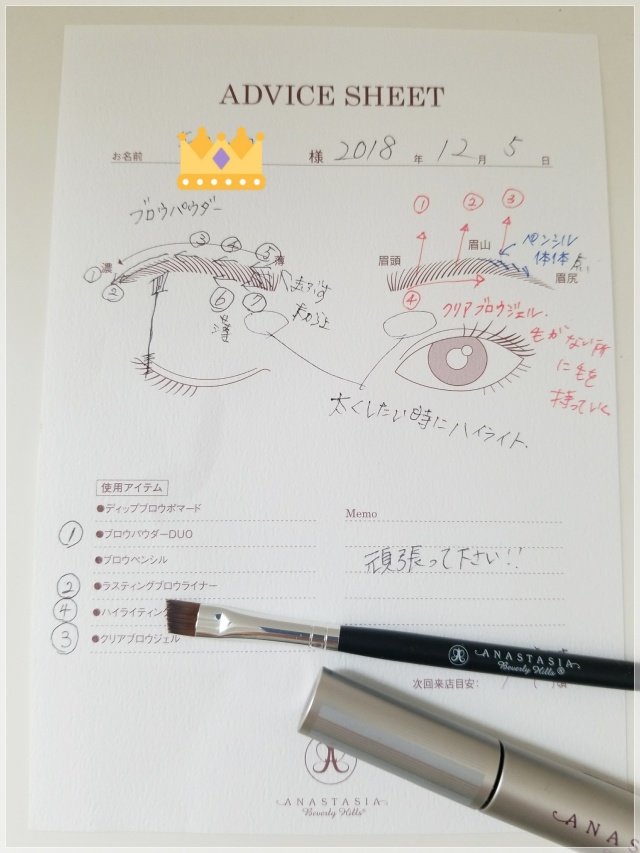 ADVICE SHEET
お名前 様 2018 年 12 月 5 日
ブロウパウダー
① ② ③
③ ④ ⑤
眉山
ペンシル
濃 薄
眉頭
① ②
眉尻
⑥ ⑦
④
薄
クリアブロウジェル.
毛がない所
に毛を
持っていく
太くしたい時にハイライト.
使用アイテム
●ディップブロウポマード
Memo
① ●ブロウパウダーDUO
頑張って下さい!!
●ブロウペンシル
② ●ラスティングブロウライナー
④ ●ハイライティング
③ ●クリアブロウジェル
ANASTASIA
Beverly Hills®
次回来店目安:
ANASTASIA
Beverly Hills®
ANAS